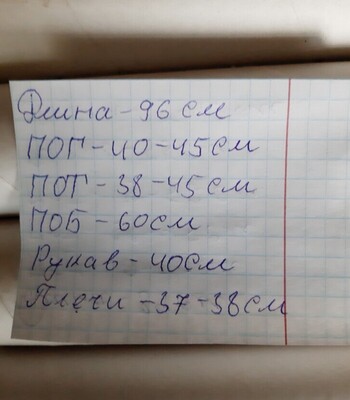 Длина - 96 см
ПОГ - 40 - 45 см
ПОТ - 38 - 45 см
ПОБ - 60 см
Рукав - 40 см
Плечи - 37 - 38 см